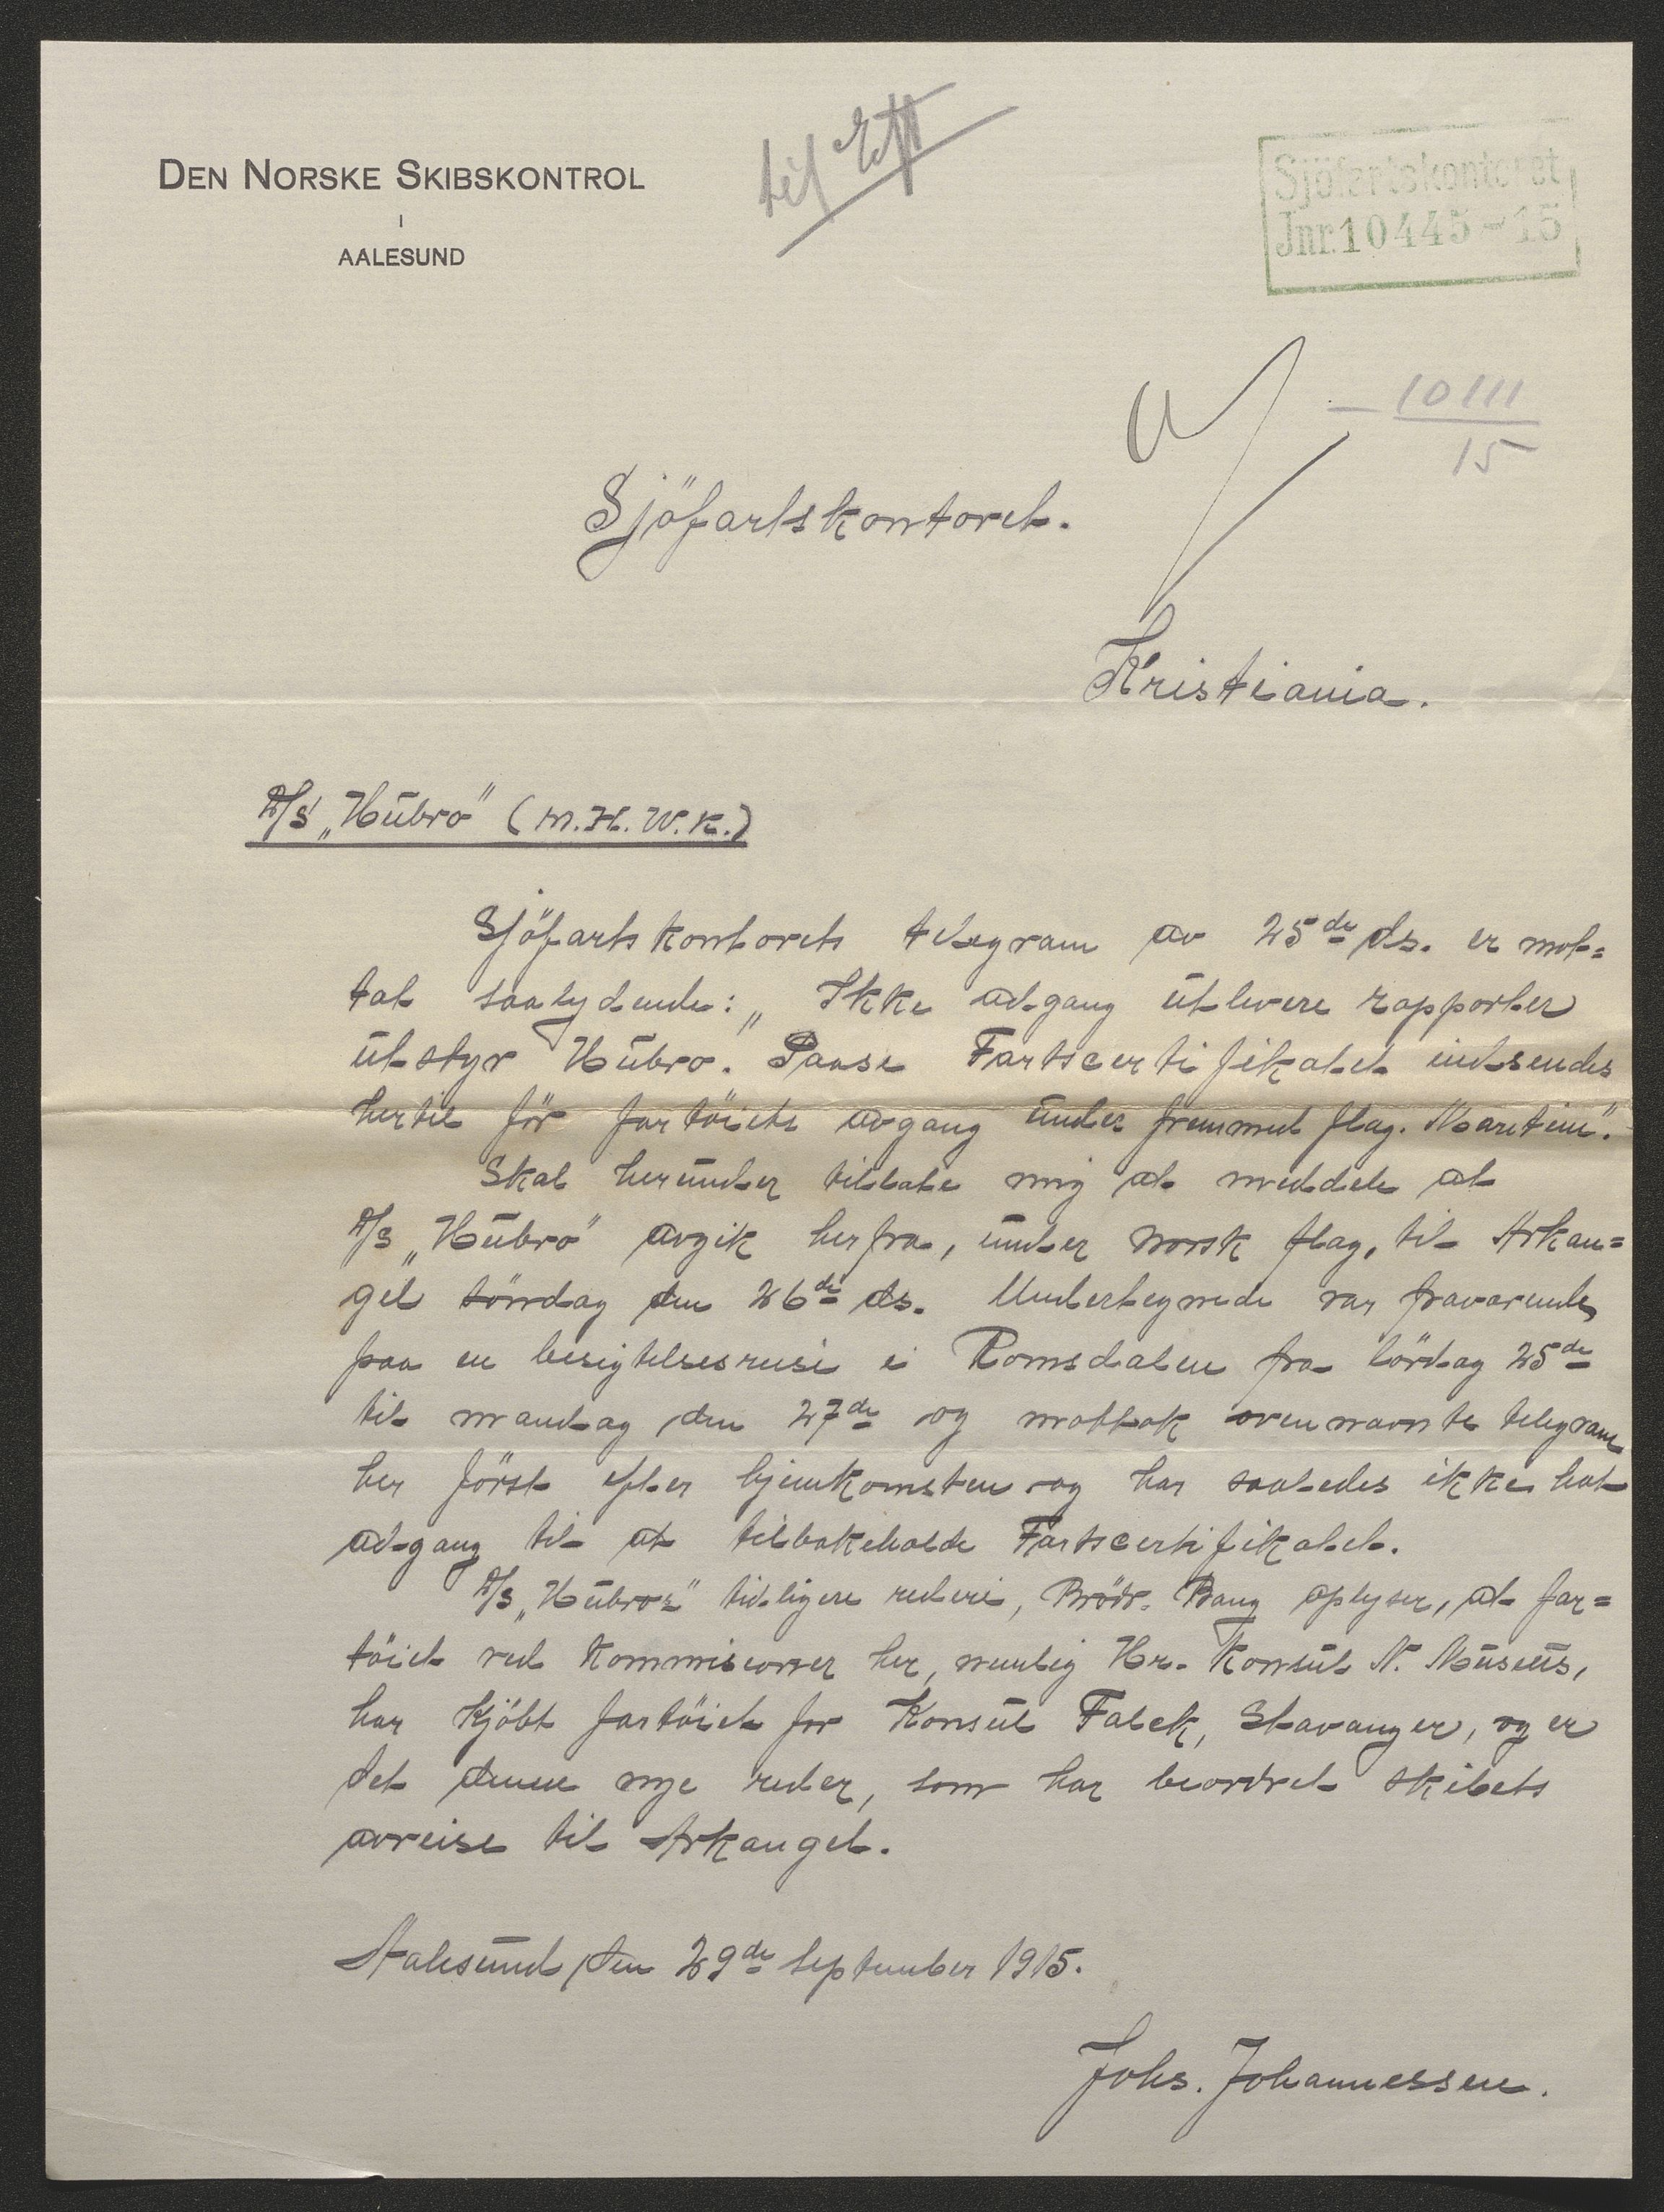 DEN NORSKE SKIBSKONTROL
I
AALESUND
til
Sjöfartskontoret
Jnr. 10445-15
10111
15
Sjöfartskontoret.
Kristiania.
D/S „Hubro" (M.H.W.K.)
Sjöfartskontorets telegram av 25de ds. er mot=
tat saalydende: „Ikke adgang utlevere rapporter
utstyr Hubro. Paase Fartscertifikatet indsendes
hertil för fartöiets avgang under fremmed flag. Maritim".
Skal herunder tillate mig at meddele at
D/S „Hubro" avgik herfra, under norsk flag, til Arkan=
gel söndag den 26de ds. Undertegnede var fraværende
paa en besigtelsesreise i Romsdalen fra lördag 25de
til mandag den 27de og mottok ovennævnte telegram
her först efter hjemkomsten og har saaledes ikke hat
adgang til at tilbakeholde Fartscertifikatet.
D/S „Hubros" tidligere rederi, Brödr. Bang oplyser, at far=
töiet ved kommisioner her, nemlig Hr. Konsul N. Museus,
har kjöbt fartöiet for Konsul Falck, Stavanger, og er
det denne nye reder, som har beordret skibets
avreise til Arkangel.
Aalesund, den 29de September 1915.
Johs. Johannessen.